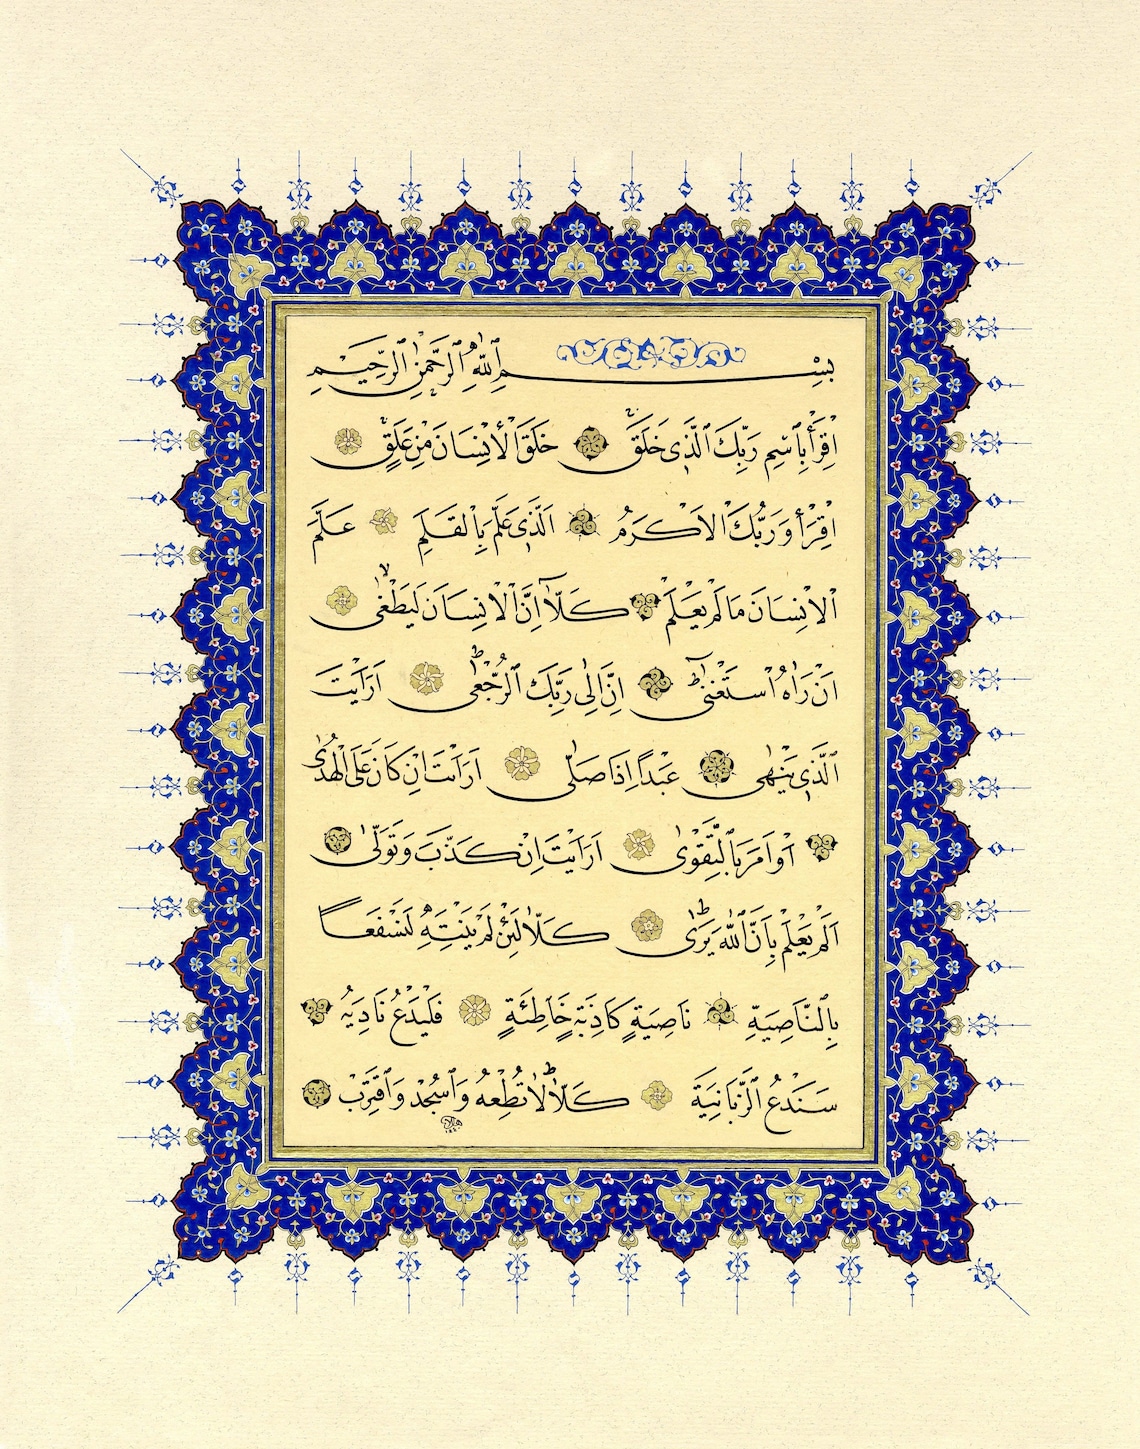 بِسْمِ ٱللّٰهِ ٱلرَّحْمٰنِ ٱلرَّح۪يمِ
اِقْرَأْ بِاسْمِ رَبِّكَ ٱلَّذ۪ى خَلَقَۚ خَلَقَ الْاِنْسَانَ مِنْ عَلَقٍۚ
اِقْرَأْ وَرَبُّكَ الْاَكْرَمُ اَلَّذ۪ى عَلَّمَ بِالْقَلَمِ عَلَّمَ
الْاِنْسَانَ مَا لَمْ يَعْلَمْ كَلَّٓا اِنَّ الْاِنْسَانَ لَيَطْغٰىۙ
اَنْ رَاٰهُ اسْتَغْنٰىۜ اِنَّ اِلٰى رَبِّكَ ٱلرُّجْعٰىۜ اَرَاَيْتَ
ٱلَّذ۪ى يَنْهٰى عَبْدًا اِذَا صَلّٰى اَرَاَيْتَ اِنْ كَانَ عَلَى الْهُدٰى
اَوْ اَمَرَ بِالتَّقْوٰى اَرَاَيْتَ اِنْ كَذَّبَ وَتَوَلّٰى
اَلَمْ يَعْلَمْ بِاَنَّ ٱللّٰهَ يَرٰىۜ كَلَّا لَئِنْ لَمْ يَنْتَهِ لَنَسْفَعًا
بِٱلنَّاصِيَةِ نَاصِيَةٍ كَاذِبَةٍ خَاطِئَةٍ فَلْيَدْعُ نَادِيَهُ
سَنَدْعُ ٱلزَّبَانِيَةَ كَلَّاۜ لَا تُطِعْهُ وَٱسْجُدْ وَٱقْتَرِبْ